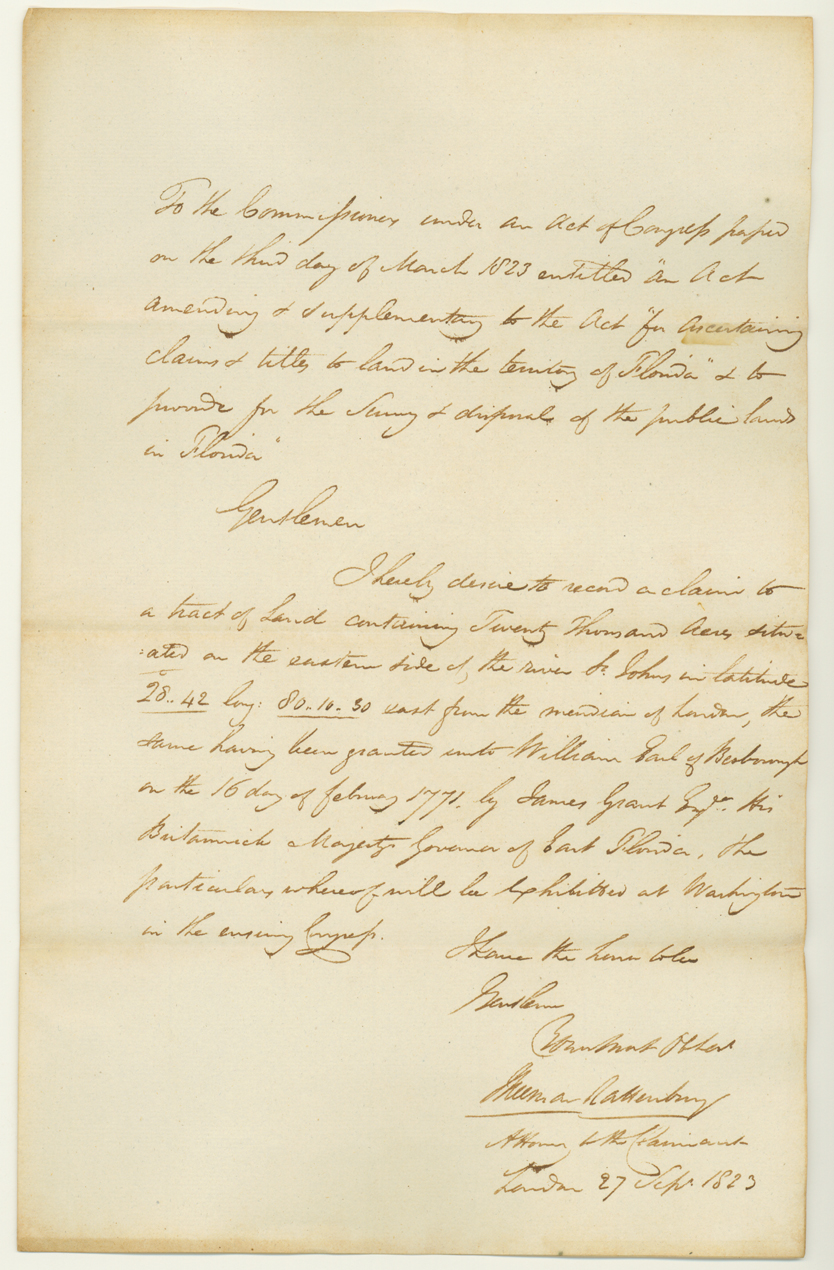 To the Commissioners under an Act of Congress passed
on the third day of March 1823 entitled "an Act
amending & supplementary to the Act "for ascertaining
claims & titles to land in the territory of Florida" & to
provide for the Survey & disposal of the public lands
in Florida"
Gentlemen
I hereby desire to record a claim to
a tract of Land containing Twenty Thousand Acres situ=
:ated on the eastern side of the river St. Johns in latitude
28..42 long: 80..10..30 east from the meridian of London, the
same having been granted unto William Earl of Besborough
on the 16 day of february 1771. by James Grant Esqr. His
Britannick Majestys Governor of East Florida, the
particulars whereof will be Exhibitted at Washington
in the ensuing Congress.
I have the honor to be
Gentlemen
Your most Obt.
Rattenbury
Attorney to the Claimant
London 27 Sepr. 1823